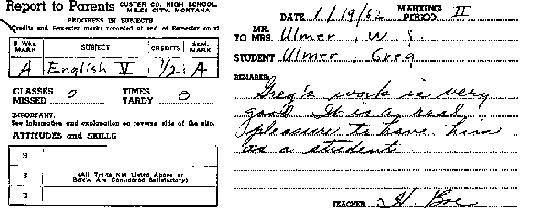 Report to Parents CUSTER CO. HIGH SCHOOL
MILES CITY, MONTANA
PROGRESS IN SUBJECTS
Credits and Semester marks recorded at end of Semester only
9 Wks. MARK SUBJECT CREDITS SEM. MARK
A English V 1/2 A
CLASSES MISSED 0 TIMES TARDY 0
IMPORTANT.
See information and explanation on reverse side of the slip.
ATTITUDES and SKILLS
(All Traits Not Listed Above or
Below Are Considered Satisfactory)
DATE 1/19/62 MARKING PERIOD II
MR.
TO MRS. Ulmer, W. S.
STUDENT Ulmer, Greg
REMARKS
Greg's work is very
good. It is a real
pleasure to have him
as a student
TEACHER H.